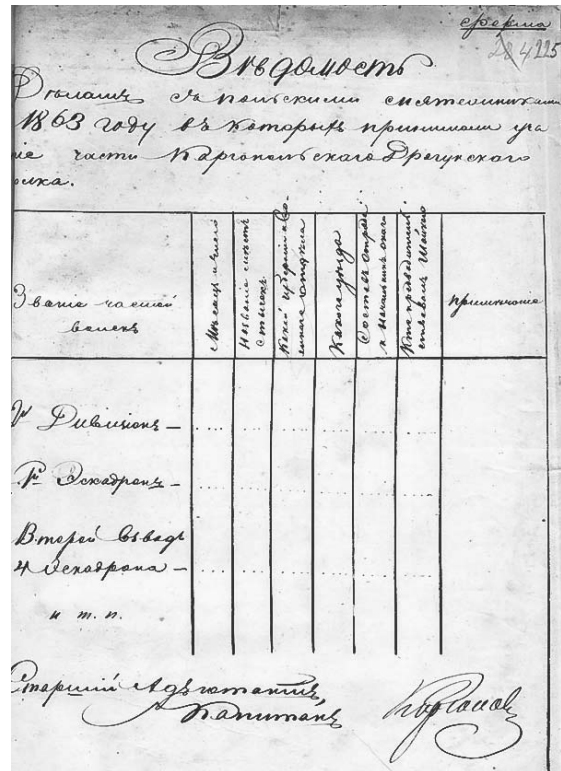 форма
284 225
Вѣдомость
Дѣламъ съ польскими мятежниками
1863 году въ которыхъ принимали уча
ie части Каргопольскаго Драгунскаго
олка.
Званiе частей
войскъ
Мѣсяцъ и число
Названiе мѣстъ
стычекъ
Какой Губернiи и Во-
еннаго отдѣла
Какого уѣзда
Составъ отряда
и Начальникъ онаго
Кто предводитель
ствовалъ Шайкою
Примѣчанiе
1й Дивизiонъ —
1й Эскадронъ —
Второй взводъ
4 Эскадрона —
и т. п.
Старшiй Адъютантъ,
Капитанъ